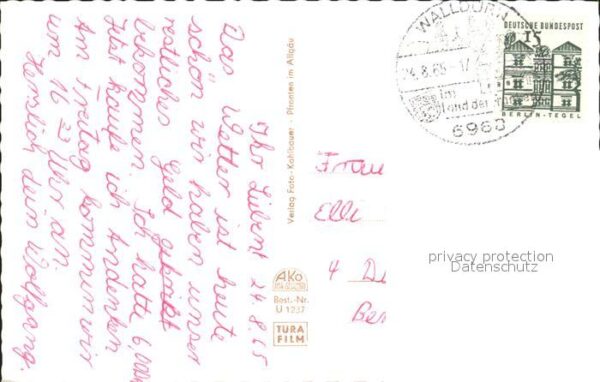 Ihr Lieben! 24.8.65
Das Wetter ist heute
schön wir haben unser
restliches Geld
bekommen. Ich hatte 6,00
Jetzt kaufe ich Andenken
Am Freitag kommen wir
um 16 23 Uhr an,
Herzlich dein Wolfgang.
Verlag Foto-Kohlbauer · Pfronten im Allgäu
AKo
Best.-Nr.
U 1237
TURA
FILM
WALLDÜRN
24.8.65-17
im
Land der
6968
DEUTSCHE BUNDESPOST
15
BERLIN-TEGEL
Elli
4
privacy protection
Datenschutz